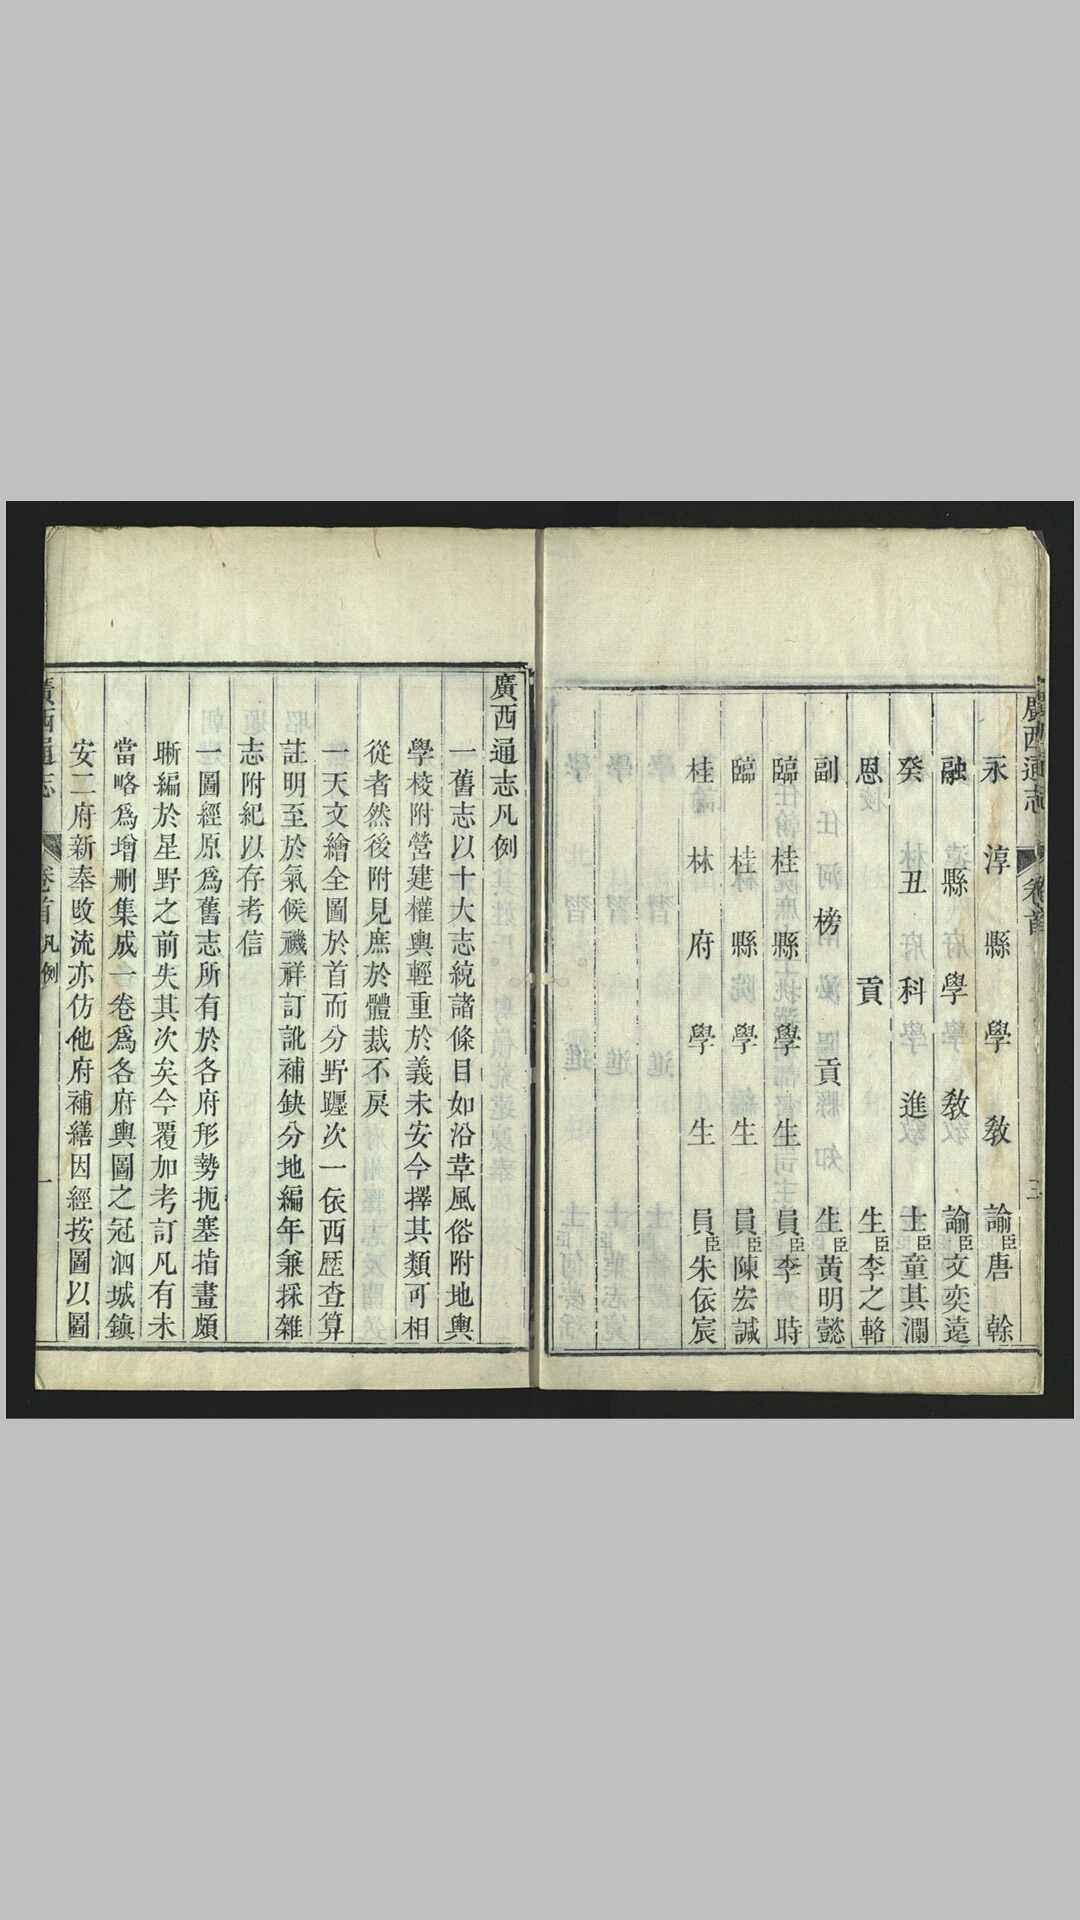 廣西通志 卷首 三
永淳縣學教諭臣唐榦
融縣學教諭臣文奕遠
癸丑科進士臣童其瀾
恩貢生臣李之輅
副榜貢生臣黃明懿
臨桂縣學生員臣李時
臨桂縣學生員臣陳宏諴
桂林府學生員臣朱依宸
廣西通志凡例
一舊志以十大志統諸條目如沿革風俗附地輿
學校附營建權輿輕重於義未安今擇其類可相
從者然後附見庶於體裁不戾
一天文繪全圖於首而分野躔次一依西歷查算
註明至於氣候禨祥訂訛補缺分地編年兼採雜
志附紀以存考信
一圖經原爲舊志所有於各府形勢扼塞指畫頗
晰編於星野之前失其次矣今覆加考訂凡有未
當略爲增删集成一卷爲各府輿圖之冠泗城鎮
安二府新奉改流亦仿他府補繕因經按圖以圖
廣西通志 卷首 凡例 一